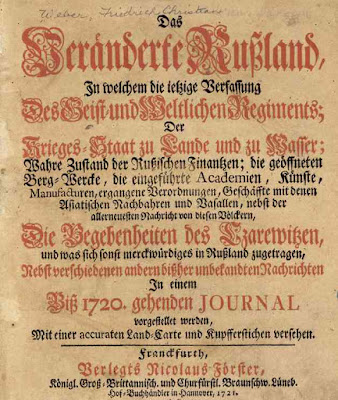 Weber, Friedrich Christian
Das
Veränderte Rußland,
In welchem die ietzige Verfassung
Des Geist- und Weltlichen Regiments;
Der
Krieges-Staat zu Lande und zu Wasser;
Wahre Zustand der Rußischen Finantzen; die geöffneten
Berg-Wercke, die eingeführte Academien, Künste,
Manufacturen, ergangene Verordnungen, Geschäffte mit denen
Asiatischen Nachbahren und Vasallen, nebst der
allerneuesten Nachricht von diesen Völckern,
Die Begebenheiten des Czarewitzen,
und was sich sonst merckwürdiges in Rußland zugetragen,
Nebst verschiedenen andern bißher unbekandten Nachrichten
In einem
Biß 1720. gehenden JOURNAL
vorgestellet werden,
Mit einer accuraten Land-Carte und Kupfferstichen versehen.
Franckfurth,
Verlegts Nicolaus Förster,
Königl. Groß-Brittannisch. und Churfürstl. Braunschw. Lüneb.
Hof-Buchhändler in Hannover, 1721.